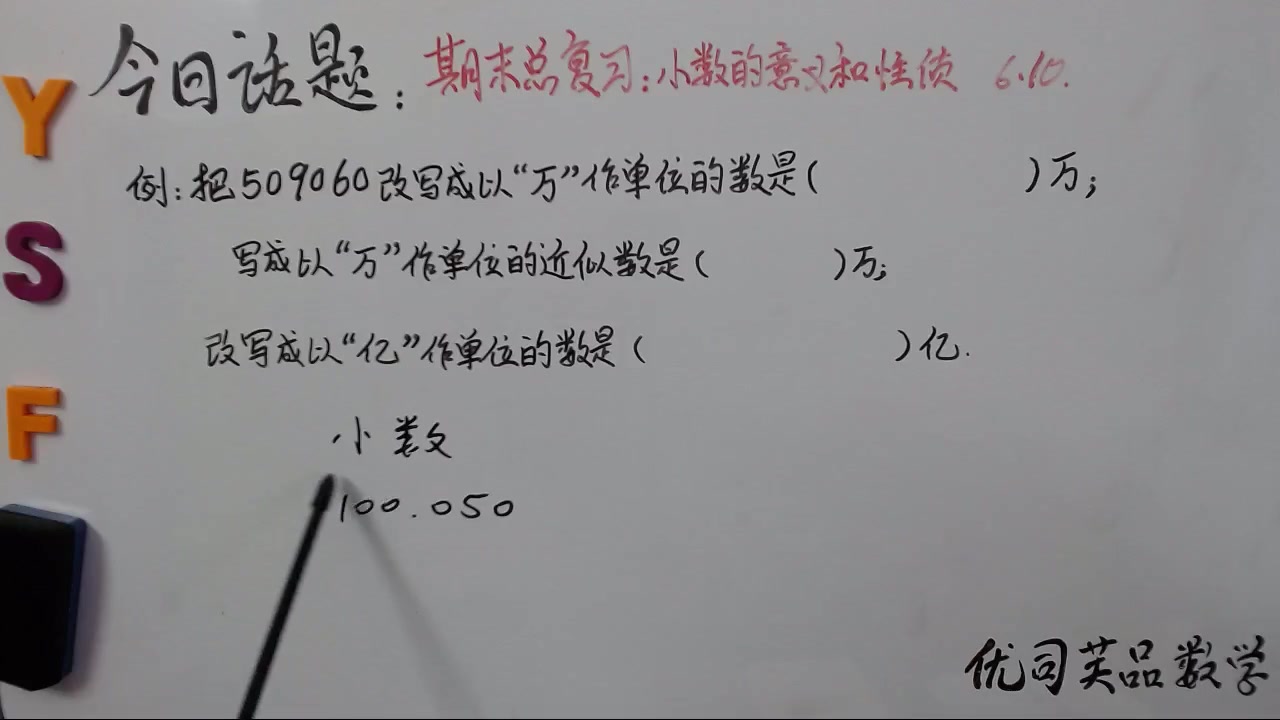 今日话题：期末总复习：小数的意义和性质 6.10.
例：把509060改写成以“万”作单位的数是（ ）万；
写成以“万”作单位的近似数是（ ）万；
改写成以“亿”作单位的数是（ ）亿.
小数
100.050
Y
S
F
优司芙品数学